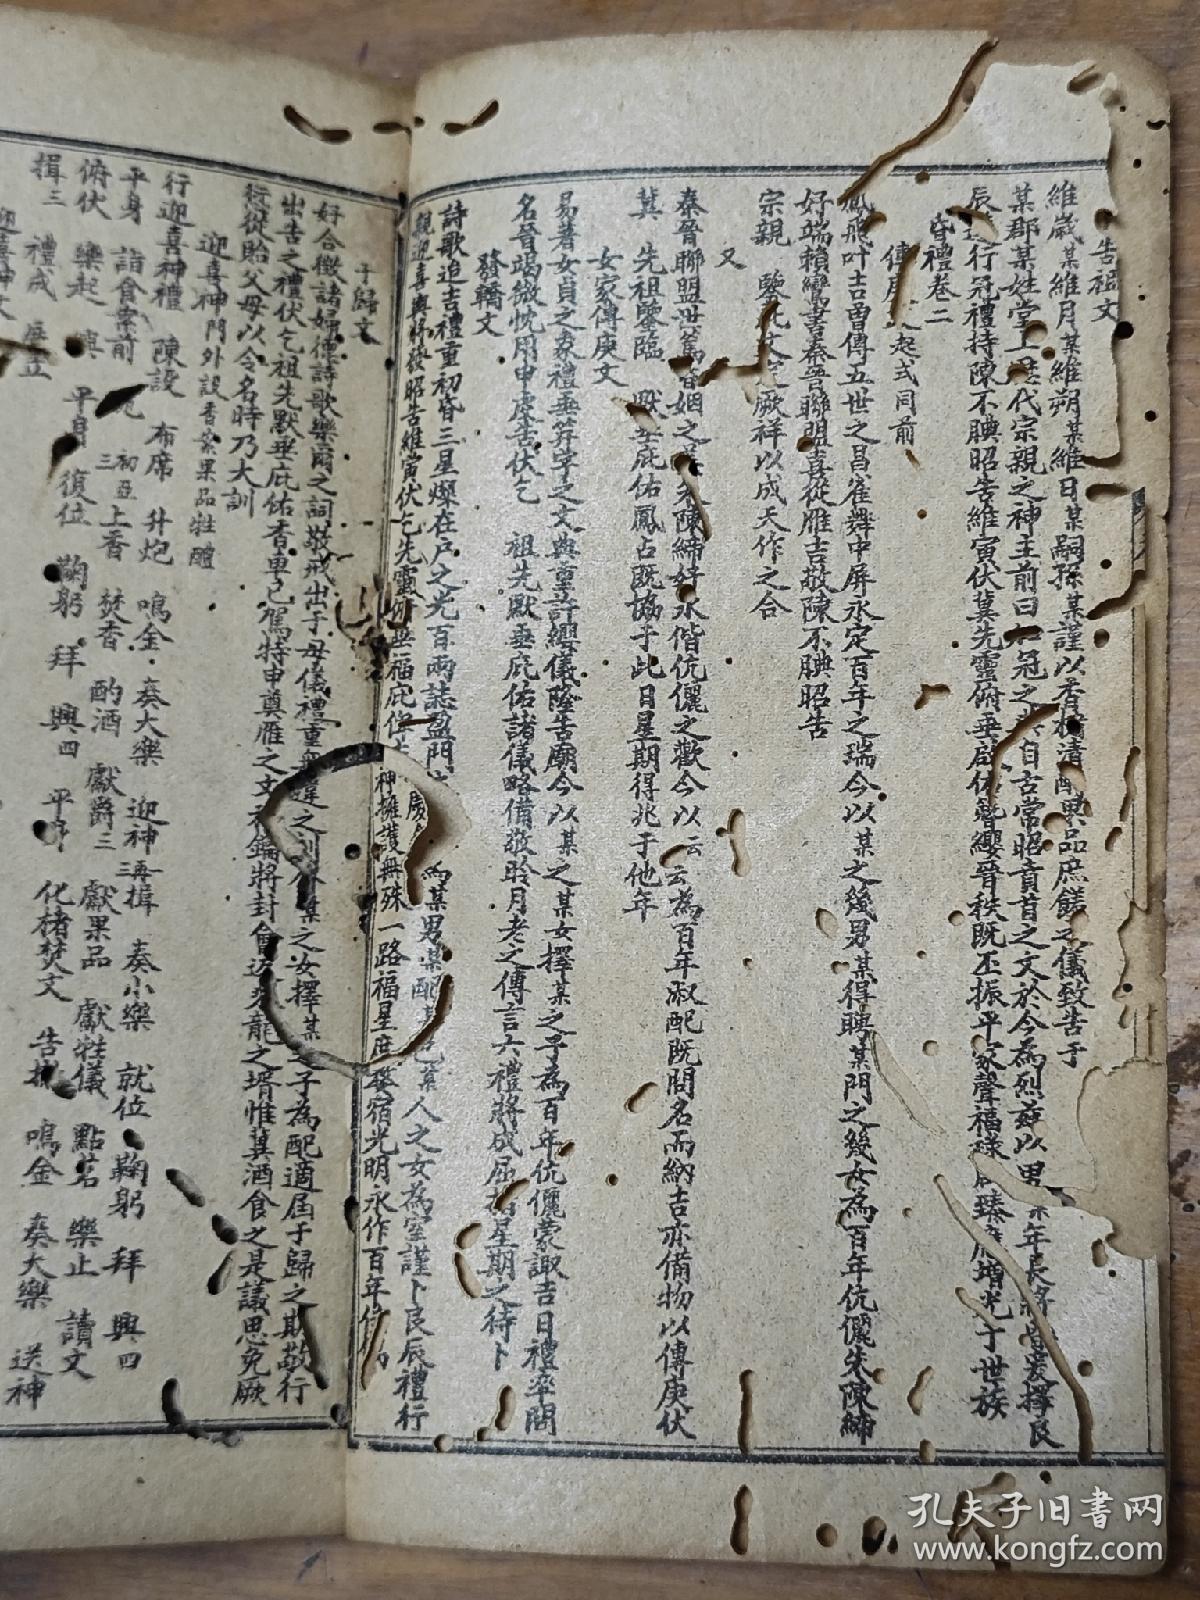 告祖文
維歲某維月某維朔某維日某嗣孫某謹以香楮清酌果品庶饈之儀致告于
某郡某姓堂上歷代宗親之神主前曰加冠之自古常昭責首之文於今為烈茲以男某年長將冠爰擇良
辰行冠禮持陳不腆昭告維寅伏冀先靈俯垂啟佑簪纓晉秩既丕振乎家聲福臻增光于世族
昏禮卷二
傳庚文起式同前
鳳飛叶吉曾傳五世之昌雀舞中屏永定百年之瑞今以某之幾男某得聘某門之幾女為百年伉儷朱陳締
好端賴鸞書秦晉聯盟喜從雁吉敬陳不腆昭告
宗親 鑒此文定厥祥以成天作之合
又
秦晉聯盟世篤昏姻之朱陳締好永偕伉儷之歡今以云云為百年淑配既問名而納吉亦備物以傳庚伏
冀 先祖鑒臨 默垂庇佑鳳占既協于此日星期得兆于他年
女家傳庚文
易著女貞之彖禮垂笄字之文典重許纓儀隆告廟今以某之某女擇某之子為百年伉儷蒙諏吉日禮率問
名晉竭微忱用申虔告伏乞 祖先默垂庇佑諸儀略備敬聆月老之傳言六禮將成屈指星期之待卜
發轎文
詩歌迨吉禮重初昏三星燦在戶之光百兩誌盈門之慶為某男某配某人之女為室謹卜良辰禮行
親迎喜輿將發昭告維寅伏乞先靈俯垂福庇神擁護毋殊一路福星庶婺宿光明永作百年
于歸文
好合徵諸婦德詩歌樂爾之詞敬戒出于母儀禮重無違之訓今某之女擇某之子為配適屆于歸之期敬行
出告之禮伏乞祖先默垂庇佑香車已駕特申奠雁之文將封會近乘龍之壻惟冀酒食之是議思免厥
衍從貽父母以令名時乃大訓
迎喜神門外設香案果品牲醴
行迎喜神禮 陳設 布席 升炮 鳴金 奏大樂 迎神再三揖 奏小樂 就位 鞠躬 拜 興四
平身 詣香案前 初亞三上香 焚香 酌酒 獻爵三 獻果品 獻牲儀 點茗 樂止 讀文
俯伏 樂起 興 平身 復位 鞠躬 拜 興四 平身 化楮焚文 告 鳴金 奏大樂 送神
揖三 禮成
迎喜神文
孔夫子旧書网
www.kongfz.com